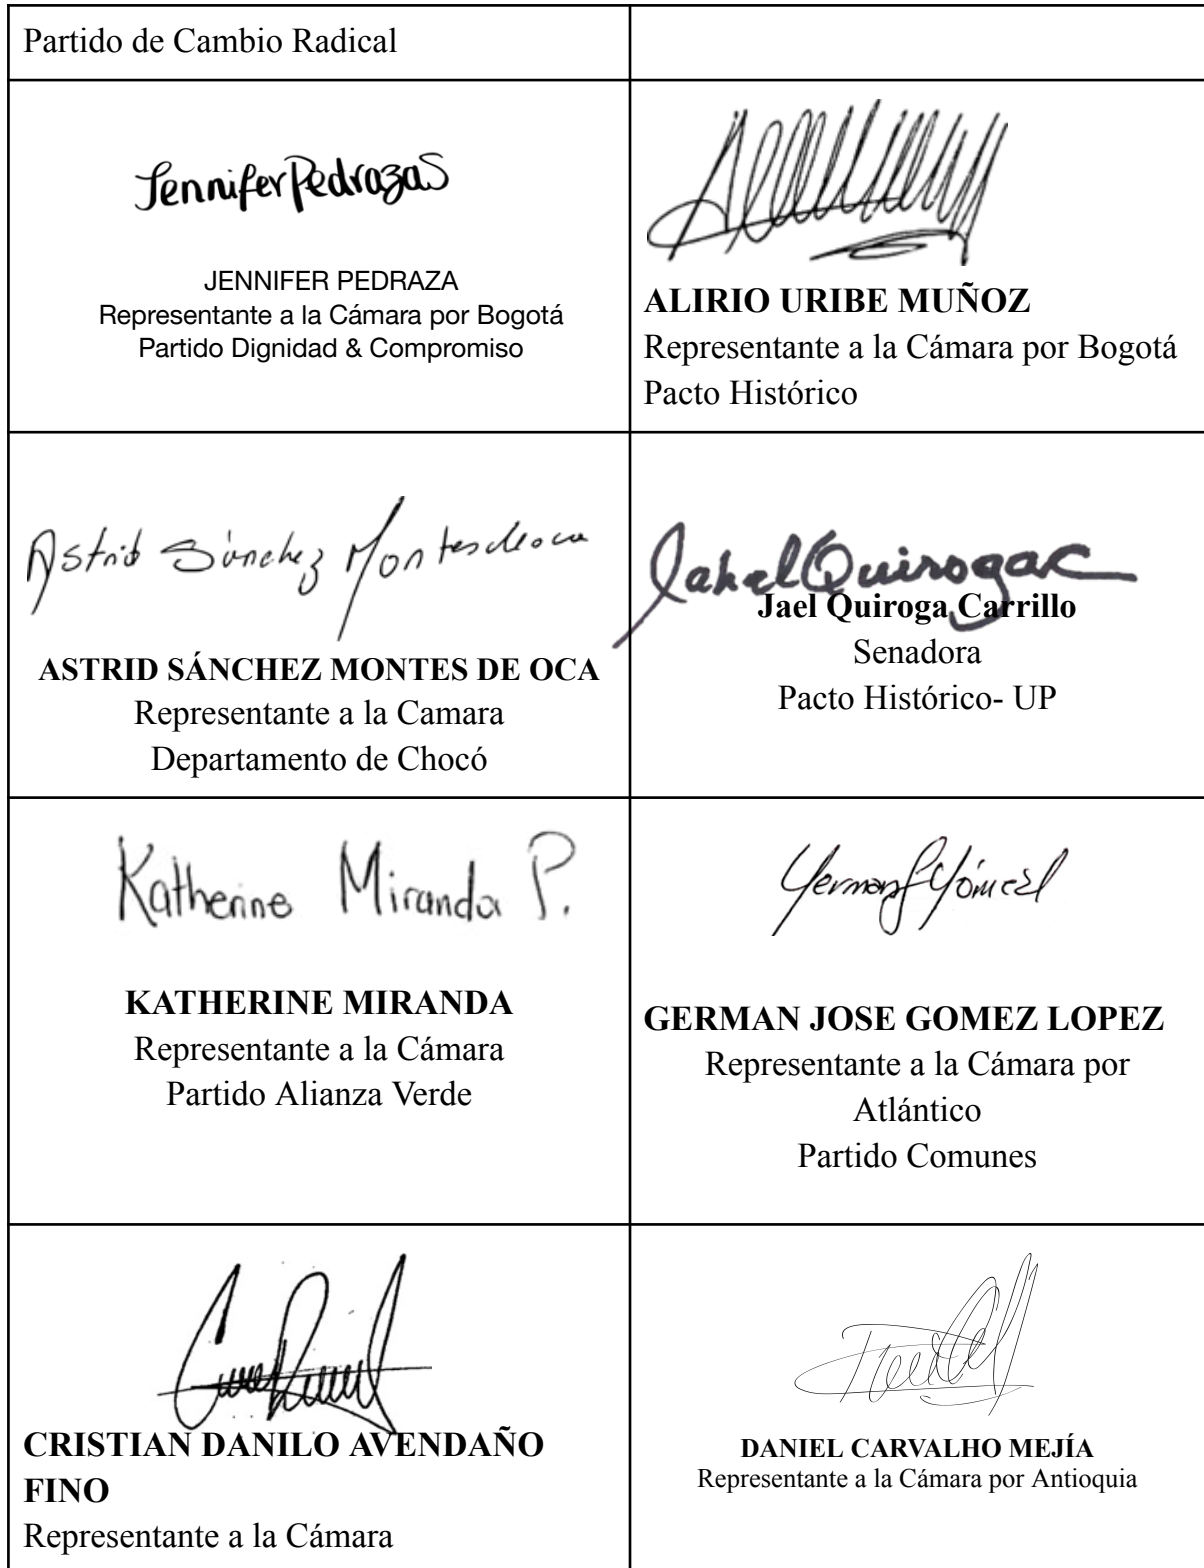 Partido de Cambio Radical
Jennifer Pedraza S
JENNIFER PEDRAZA
Representante a la Cámara por Bogotá
Partido Dignidad & Compromiso
ALIRIO URIBE MUÑOZ
Representante a la Cámara por Bogotá
Pacto Histórico
Astrid Sánchez Montesdeoca
ASTRID SÁNCHEZ MONTES DE OCA
Representante a la Camara
Departamento de Chocó
Jahel Quiroga C
Jael Quiroga Carrillo
Senadora
Pacto Histórico- UP
Katherine Miranda P.
KATHERINE MIRANDA
Representante a la Cámara
Partido Alianza Verde
GERMAN JOSE GOMEZ LOPEZ
Representante a la Cámara por
Atlántico
Partido Comunes
CRISTIAN DANILO AVENDAÑO
FINO
Representante a la Cámara
DANIEL CARVALHO MEJÍA
Representante a la Cámara por Antioquia